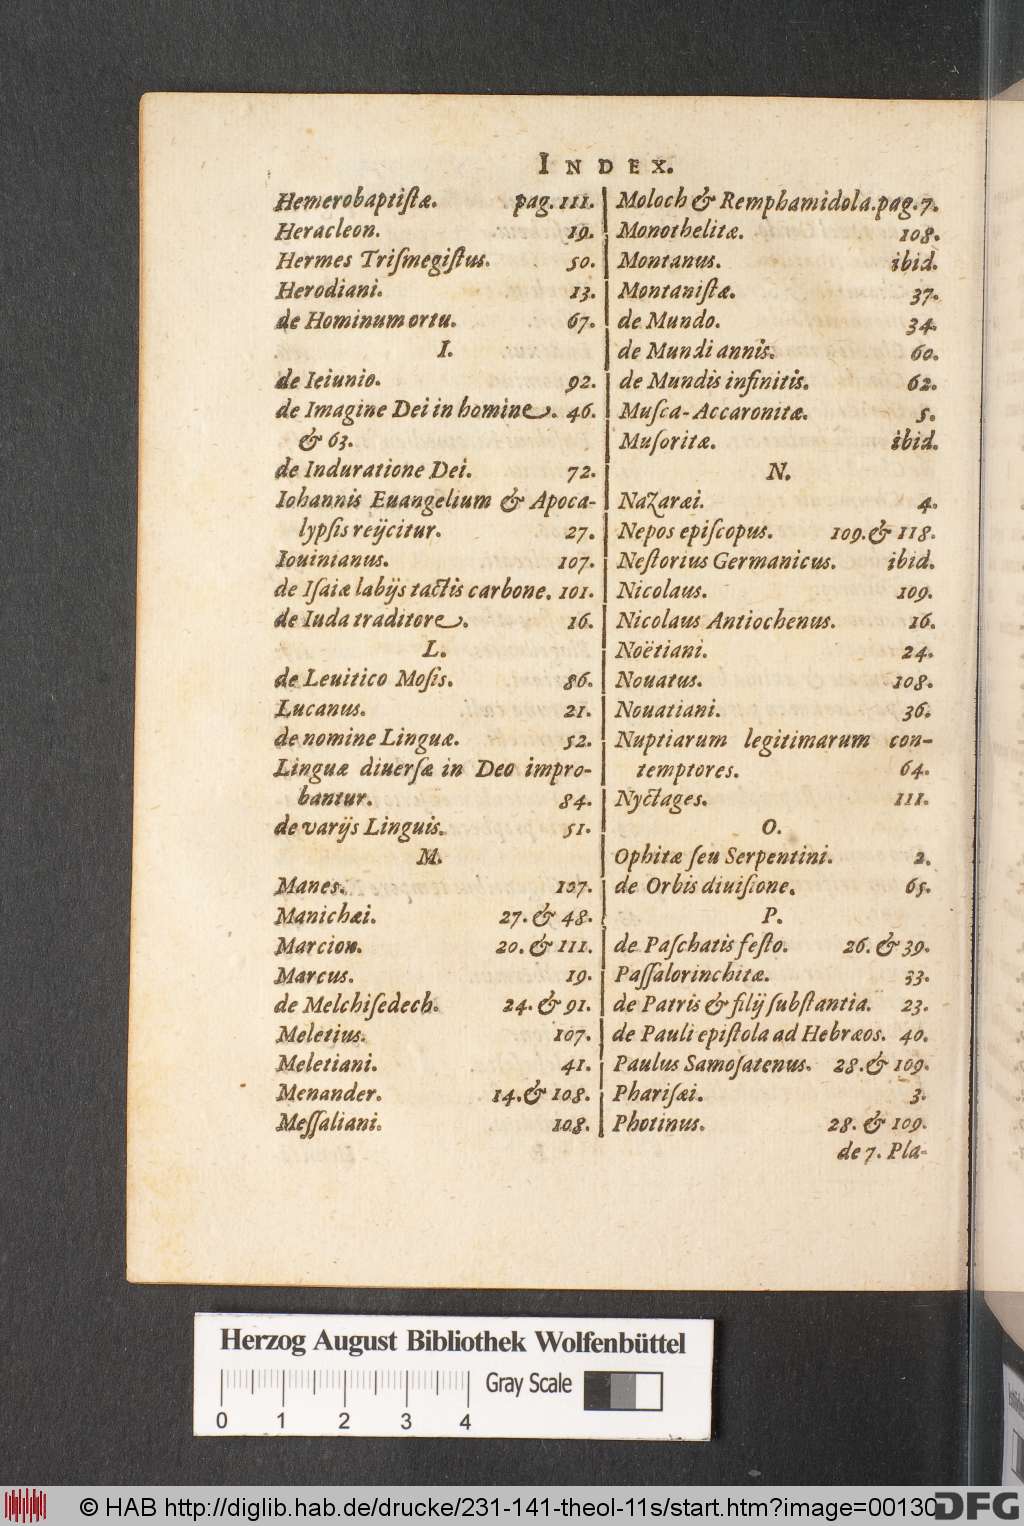 INDEX.
Hemerobaptiſtæ. pag. 111.
Heracleon. 19.
Hermes Triſmegiſtus. 50.
Herodiani. 13.
de Hominum ortu. 67.
I.
de Ieiunio. 92.
de Imagine Dei in homine. 46.
& 63.
de Induratione Dei. 72.
Iohannis Euangelium & Apoca-
lypſis reijcitur. 27.
Iouinianus. 107.
de Iſaiæ labijs tactis carbone. 101.
de Iuda traditore. 16.
L.
de Leuitico Moſis. 86.
Lucanus. 21.
de nomine Linguæ. 52.
Linguæ diuerſæ in Deo impro-
bantur. 84.
de varijs Linguis. 51.
M.
Manes. 107.
Manichæi. 27. & 48.
Marcion. 20. & 111.
Marcus. 19.
de Melchiſedech. 24. & 91.
Meletius. 107.
Meletiani. 41.
Menander. 14. & 108.
Meſſaliani. 108.
Moloch & Remphamidola. pag. 7.
Monothelitæ. 108.
Montanus. ibid.
Montaniſtæ. 37.
de Mundo. 34.
de Mundi annis. 60.
de Mundis infinitis. 62.
Muſca-Accaronitæ. 5.
Muſoritæ. ibid.
N.
Nazaræi. 4.
Nepos epiſcopus. 109. & 118.
Neſtorius Germanicus. ibid.
Nicolaus. 109.
Nicolaus Antiochenus. 16.
Noëtiani. 24.
Nouatus. 108.
Nouatiani. 36.
Nuptiarum legitimarum con-
temptores. 64.
Nyctages. 111.
O.
Ophitæ ſeu Serpentini. 2.
de Orbis diuiſione. 65.
P.
de Paſchatis feſto. 26. & 39.
Paſſalorinchitæ. 33.
de Patris & filij ſubſtantia. 23.
de Pauli epiſtola ad Hebræos. 40.
Paulus Samoſatenus. 28. & 109.
Phariſæi. 3.
Photinus. 28. & 109.
de 7. Pla-
Herzog August Bibliothek Wolfenbüttel
Gray Scale
0 1 2 3 4
© HAB http://diglib.hab.de/drucke/231-141-theol-11s/start.htm?image=00130
DFG